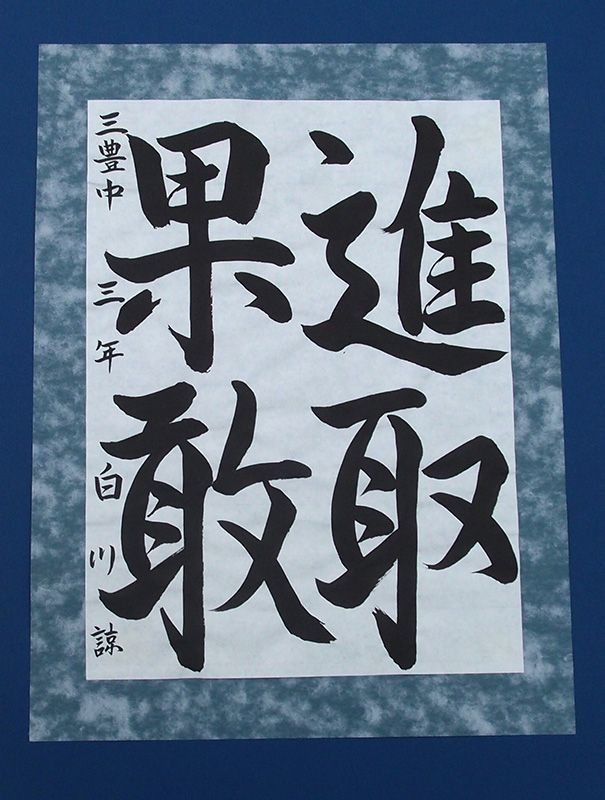 進取
果敢
三豊中 三年 白川諒